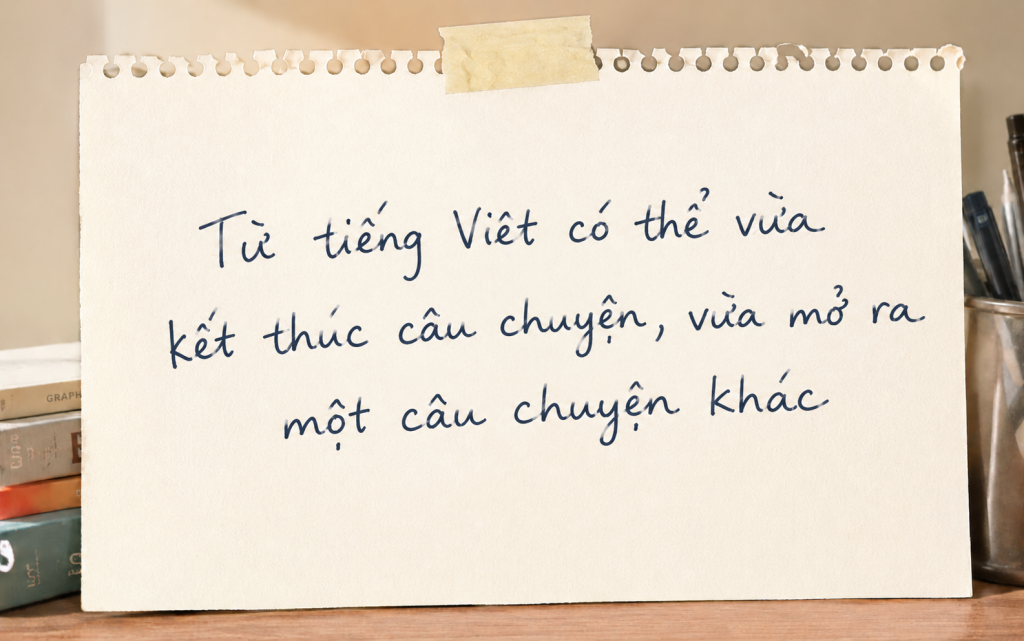 Từ tiếng Viêt có thể vừa
kết thúc câu chuyện, vừa mở ra
một câu chuyện khác
GRAPH